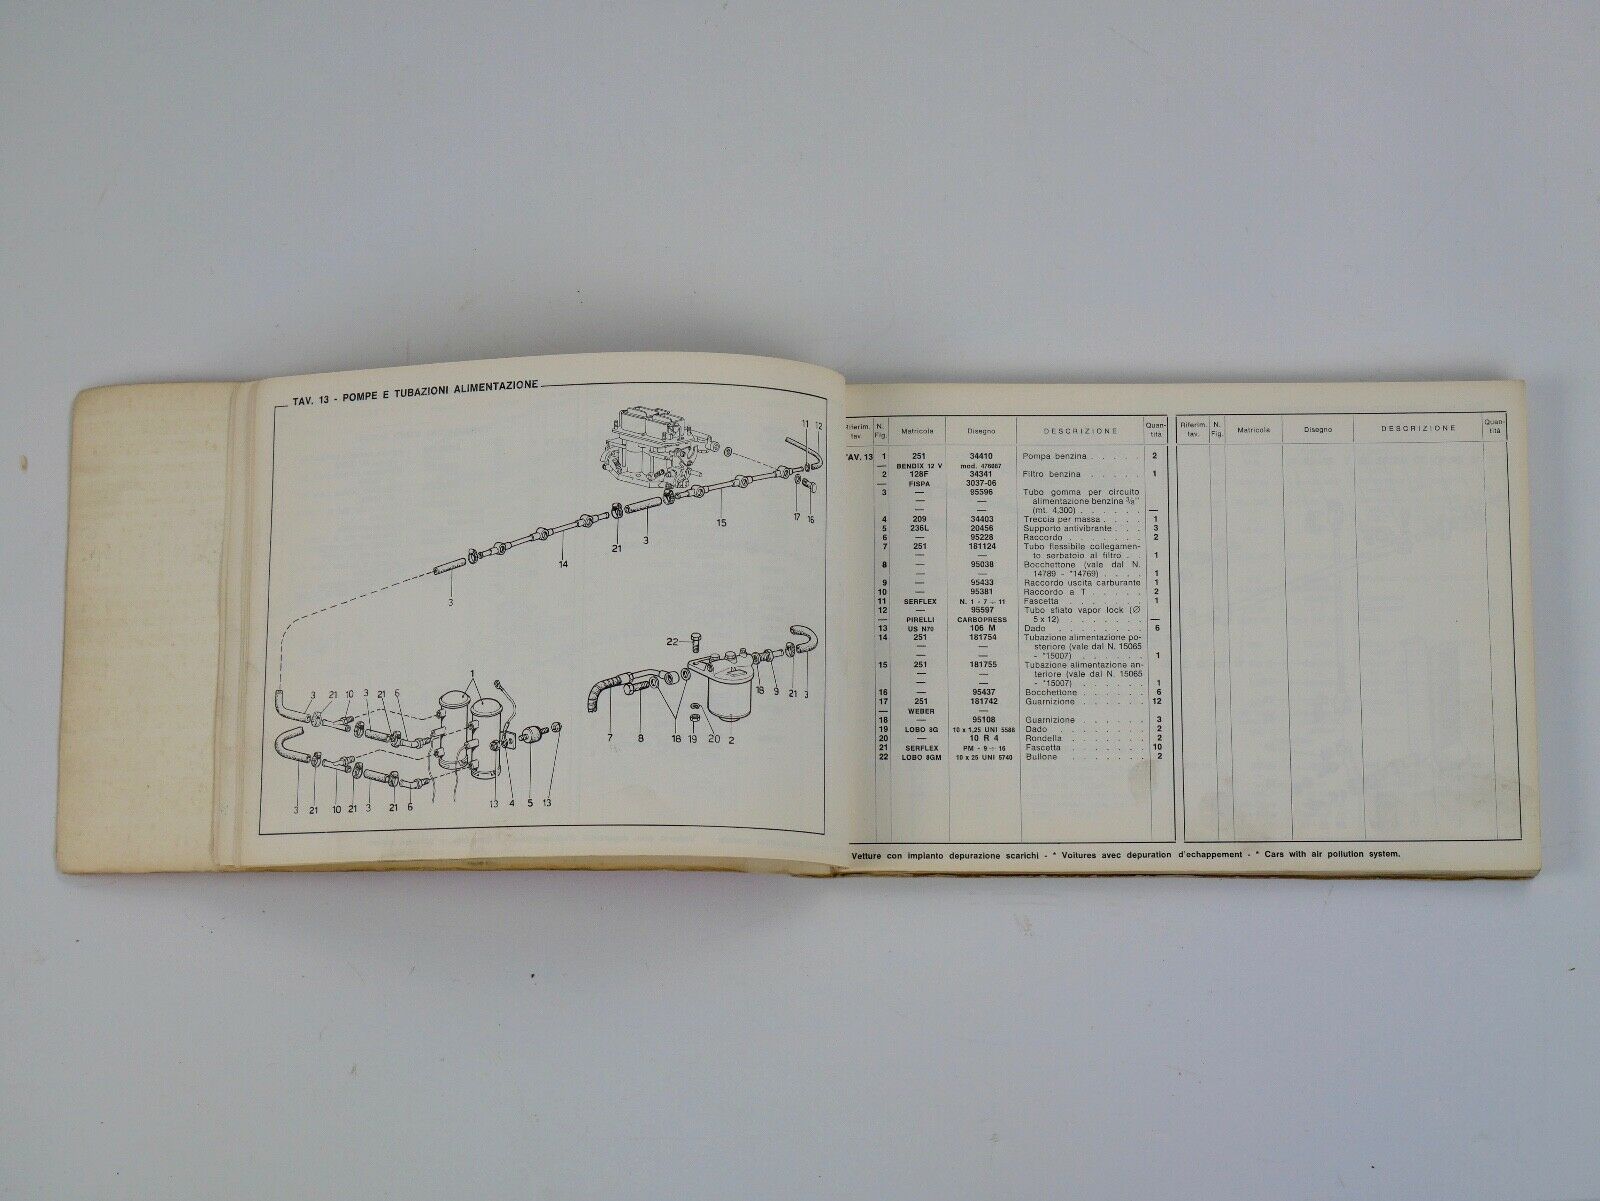 TAV. 13 - POMPE E TUBAZIONI ALIMENTAZIONE
11 12
17 16
15
3
21
14
3
22
3 21 10 3 21 6 1
18 9 21 3
7 8 18 19 20 2
3 21 10 21 3 21 6 13 4 5 13
Riferim. tav. N. Fig. Matricola Disegno DESCRIZIONE Quan- tità
TAV. 13 1 251 34410 Pompa benzina . . . . . 2
— BENDIX 12 V mod. 476087
2 128F 34341 Filtro benzina . . . . . 1
— FISPA 3037-06
3 — 95596 Tubo gomma per circuito
— — alimentazione benzina ³/₈"
— — (mt. 4,300) . . . . . . —
4 209 34403 Treccia per massa . . . . 1
5 236L 20456 Supporto antivibrante . . . 3
6 — 95228 Raccordo . . . . . . . 2
7 251 181124 Tubo flessibile collegamen-
— — to serbatoio al filtro . . 1
8 — 95038 Bocchettone (vale dal N.
— — 14789 - *14769) . . . . 1
9 — 95433 Raccordo uscita carburante 1
10 — 95381 Raccordo a T . . . . . . 2
11 SERFLEX N. 1 - 7 ÷ 11 Fascetta . . . . . . . 1
12 — 95597 Tubo sfiato vapor lock (Ø
— PIRELLI CARBOPRESS 5 x 12) . . . . . . . —
13 US N70 106 M Dado . . . . . . . . 6
14 251 181754 Tubazione alimentazione po-
— — steriore (vale dal N. 15065
— — - *15007) . . . . . . . 1
15 251 181755 Tubazione alimentazione an-
— — teriore (vale dal N. 15065
— — - *15007) . . . . . . . 1
16 — 95437 Bocchettone . . . . . . 6
17 251 181742 Guarnizione . . . . . . 12
— WEBER —
18 — 95108 Guarnizione . . . . . . 3
19 LOBO 8G 10 x 1,25 UNI 5588 Dado . . . . . . . . 2
20 — 10 R 4 Rondella . . . . . . . 2
21 SERFLEX PM - 9 ÷ 16 Fascetta . . . . . . . 10
22 LOBO 8GM 10 x 25 UNI 5740 Bullone . . . . . . . 2
Riferim. tav. N. Fig. Matricola Disegno DESCRIZIONE Quan- tità
Vetture con impianto depurazione scarichi - * Voitures avec depuration d'echappement - * Cars with air pollution system.